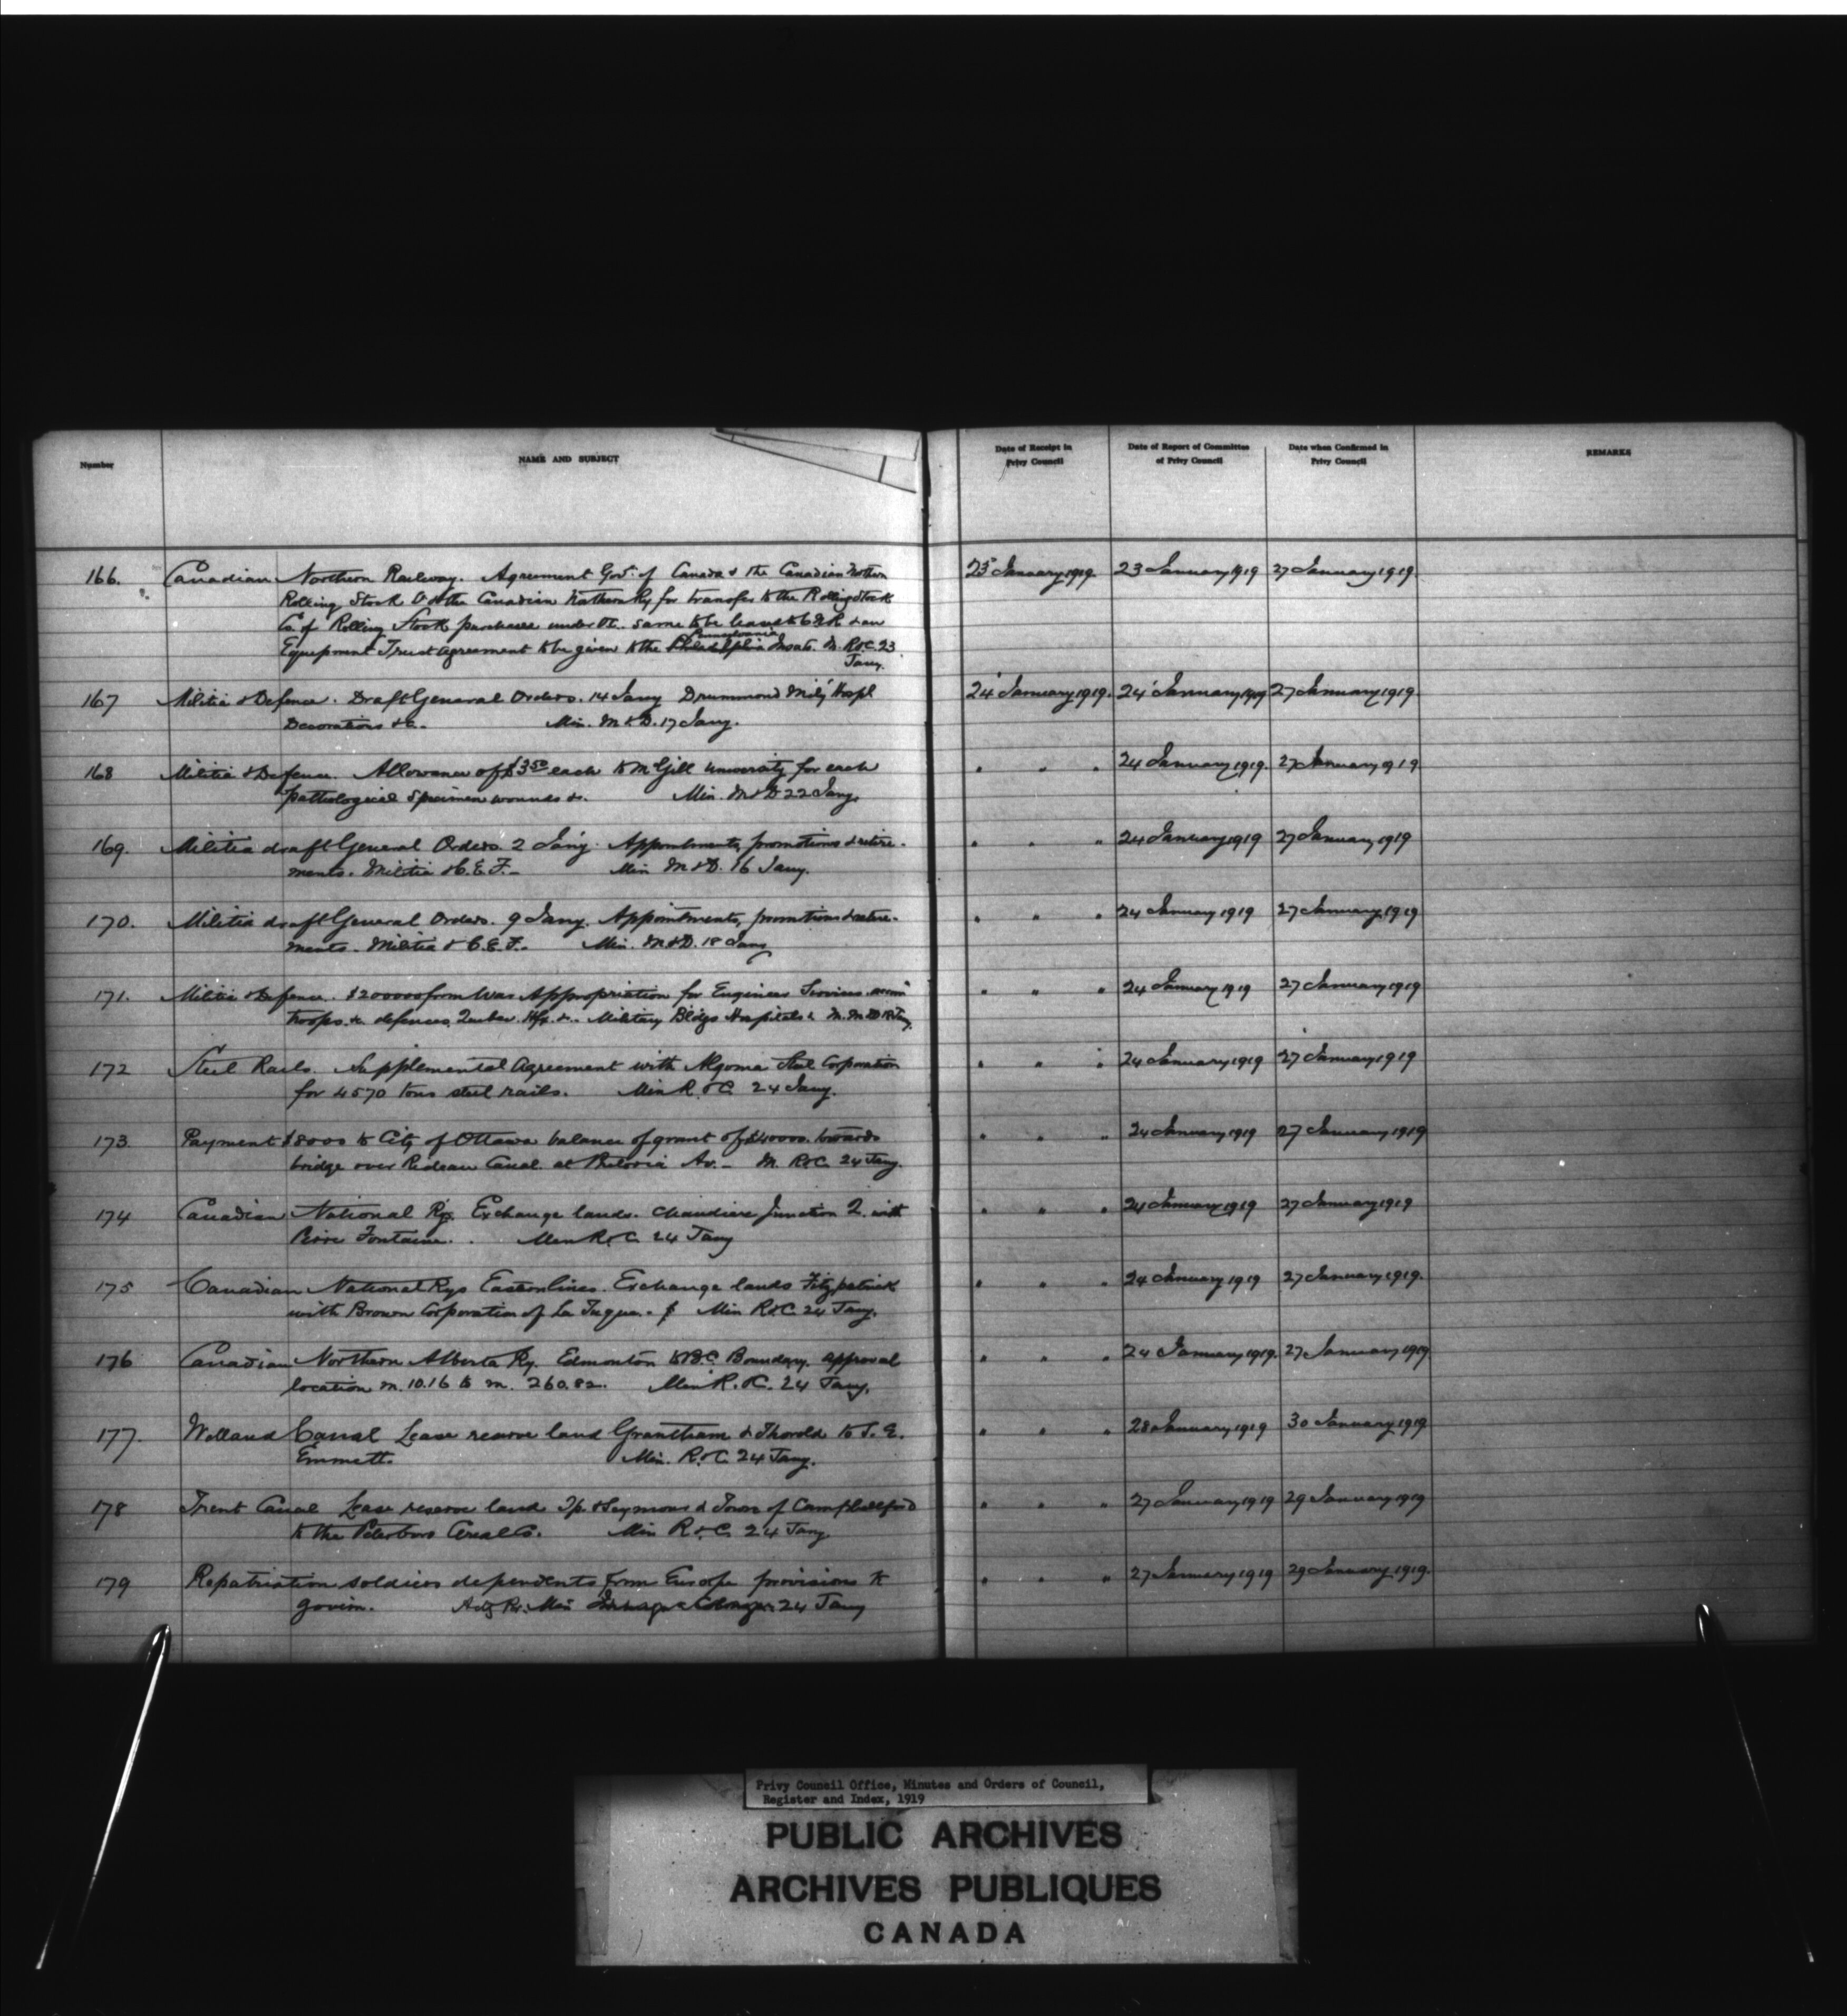 Number
NAME AND SUBJECT
Date of Receipt in
Privy Council
Date of Report of Committee
of Privy Council
Date when Confirmed in
Privy Council
REMARKS
166. Canadian Northern Railway. Agreement Govt. of Canada & the Canadian Nothern 23 January 1919. 23 January 1919 27 January 1919.
Rolling Stock & the Canadian Nothern Ry for transfer to the Rolling Stock
Co of Rolling Stock purchase under OC. same to be leased to & an
Pennsylvania
Equipment Trust agreement to be given to the Philadelphia M. R&C. 23
Jany.
167 Militia & Defence. Draft General Orders. 14 Jany Drummond Mily Hospl 24 January 1919. 24 January 1919 27 January 1919.
Decorations &c. Min. M & D. 17 Jany.
168 Militia & Defence. Allowance of $3.50 each to McGill University for each " " " 24 January 1919. 27 January 1919
pathological specimen wounds &. Min. M & D 22 Jany
169. Militia draft General Orders. 2 Jany. Appointments, promotions & retire- " " " 24 January 1919 27 January 1919
ments. Militia & C.E.F. Min M & D. 16 Jany.
170. Militia draft General Orders. 9 Jany. Appointments, promotions & retire- " " " 24 January 1919 27 January 1919
ments. Militia & C.E.F. Min. M & D. 18 Jany
171. Militia & Defence. $200000 from War Appropriation for Engineer Services. accom " " " 24 January 1919 27 January 1919
troops. & defences, Quebec. Hfx. &. Military Bldgs Hospitals & M. M & D 18 Jany.
172 Steel Rails. Supplemental Agreement with Algoma Steel Corporation " " " 24 January 1919 27 January 1919
for 4570 tons steel rails. Min R. & C. 24 Jany.
173. Payment $8000 to City of Ottawa balance of grant of $40000. towards " " " 24 January 1919 27 January 1919
bridge over Rideau Canal at Pretoria Av. M. R&C. 24 Jany.
174 Canadian National Ry. Exchange lands. Chaudiere Junction Q. with " " " 24 January 1919 27 January 1919
Pierre Fontaine. Min R. & C. 24 Jany
175 Canadian National Rys Eastern lines. Exchange lands Fitzpatrick " " " 24 January 1919 27 January 1919.
with Brown Corporation of La Tuque. Min R & C. 24 Jany.
176 Canadian Northern Alberta Ry. Edmonton to B.C. Boundary. approval " " " 24 January 1919. 27 January 1919
location m. 10.16 to m. 260.82. Min R. & C. 24 Jany.
177. Welland Canal Lease reserve land Grantham & Thorold to T. E. " " " 28 January 1919 30 January 1919
Emmett. Min. R. & C. 24 Jany.
178 Trent Canal Lease reserve land Tp. Seymour & Town of Campbellford " " " 27 January 1919 29 January 1919
to the Peterboro Cereal Co. Min R. & C. 24 Jany
179 Repatriation soldiers dependents from Europe provisions to " " " 27 January 1919 29 January 1919.
govern. Actg Pr. Min 24 Jany
Privy Council Office, Minutes and Orders of Council,
Register and Index, 1919
PUBLIC ARCHIVES
ARCHIVES PUBLIQUES
CANADA